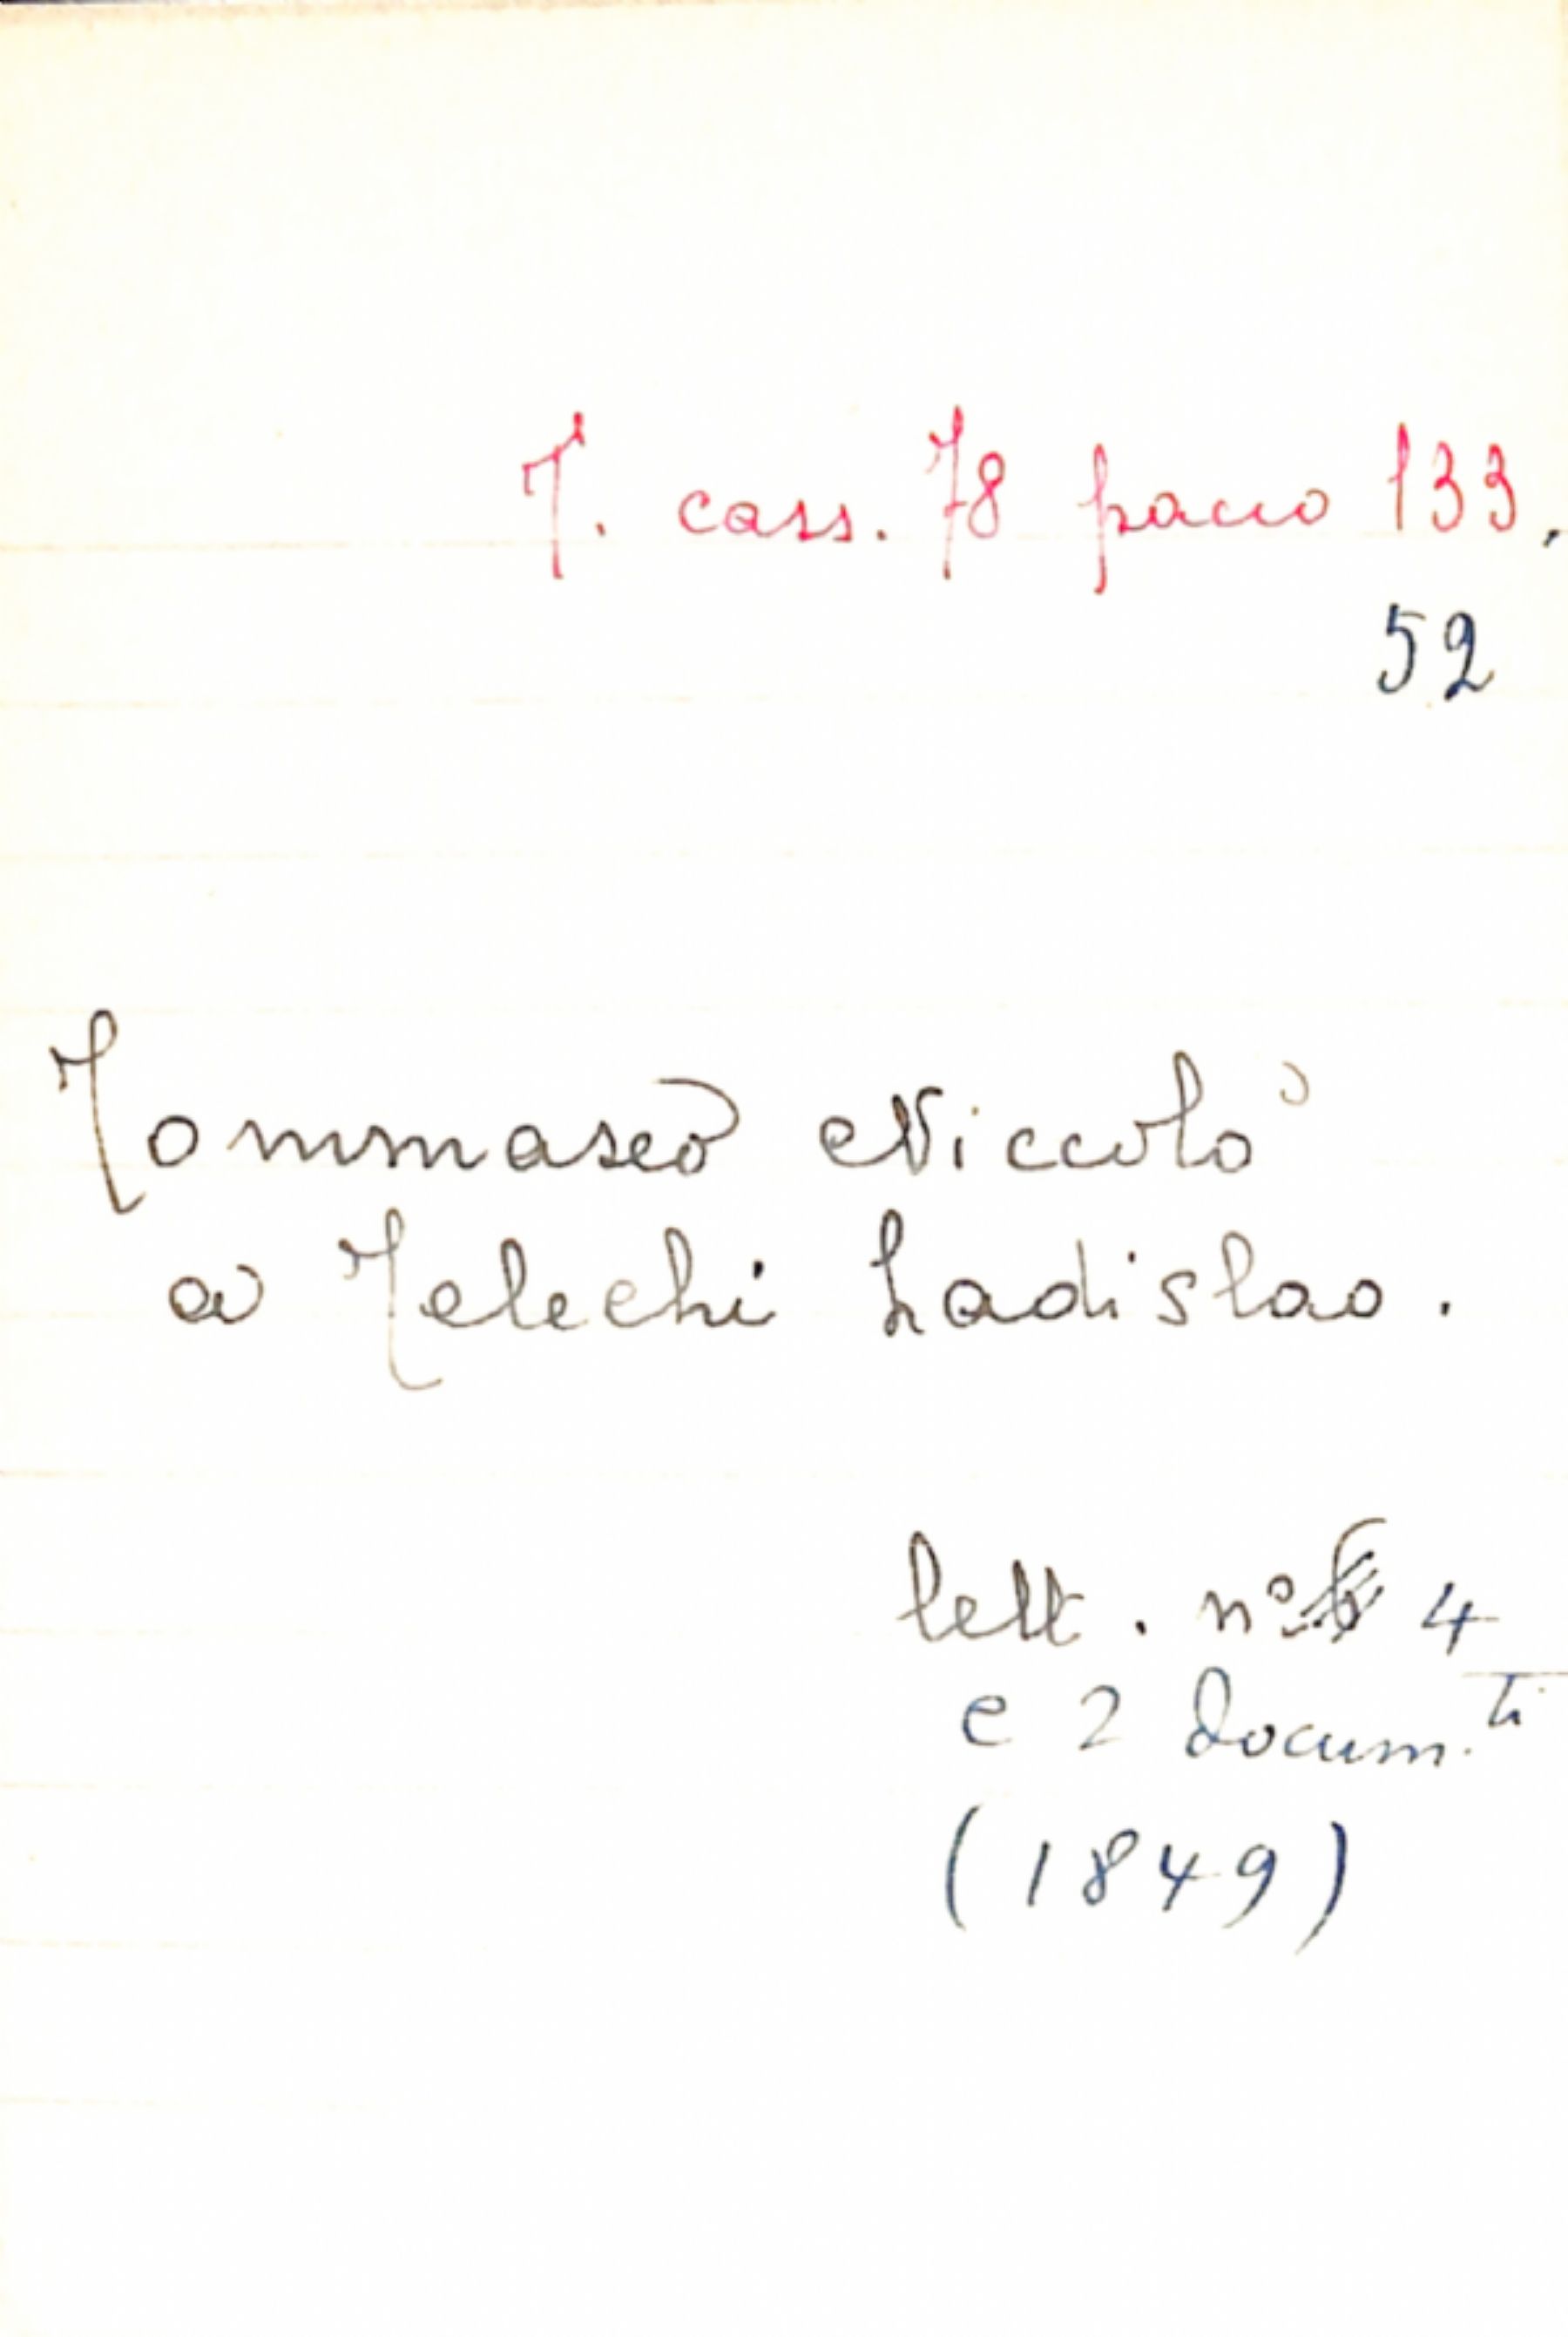 T. cass. 78 pacco 133,
52
Tommaseo Niccolò
a Telechi Ladislao.
lett. nº 4
e 2 docum.ti
(1849)